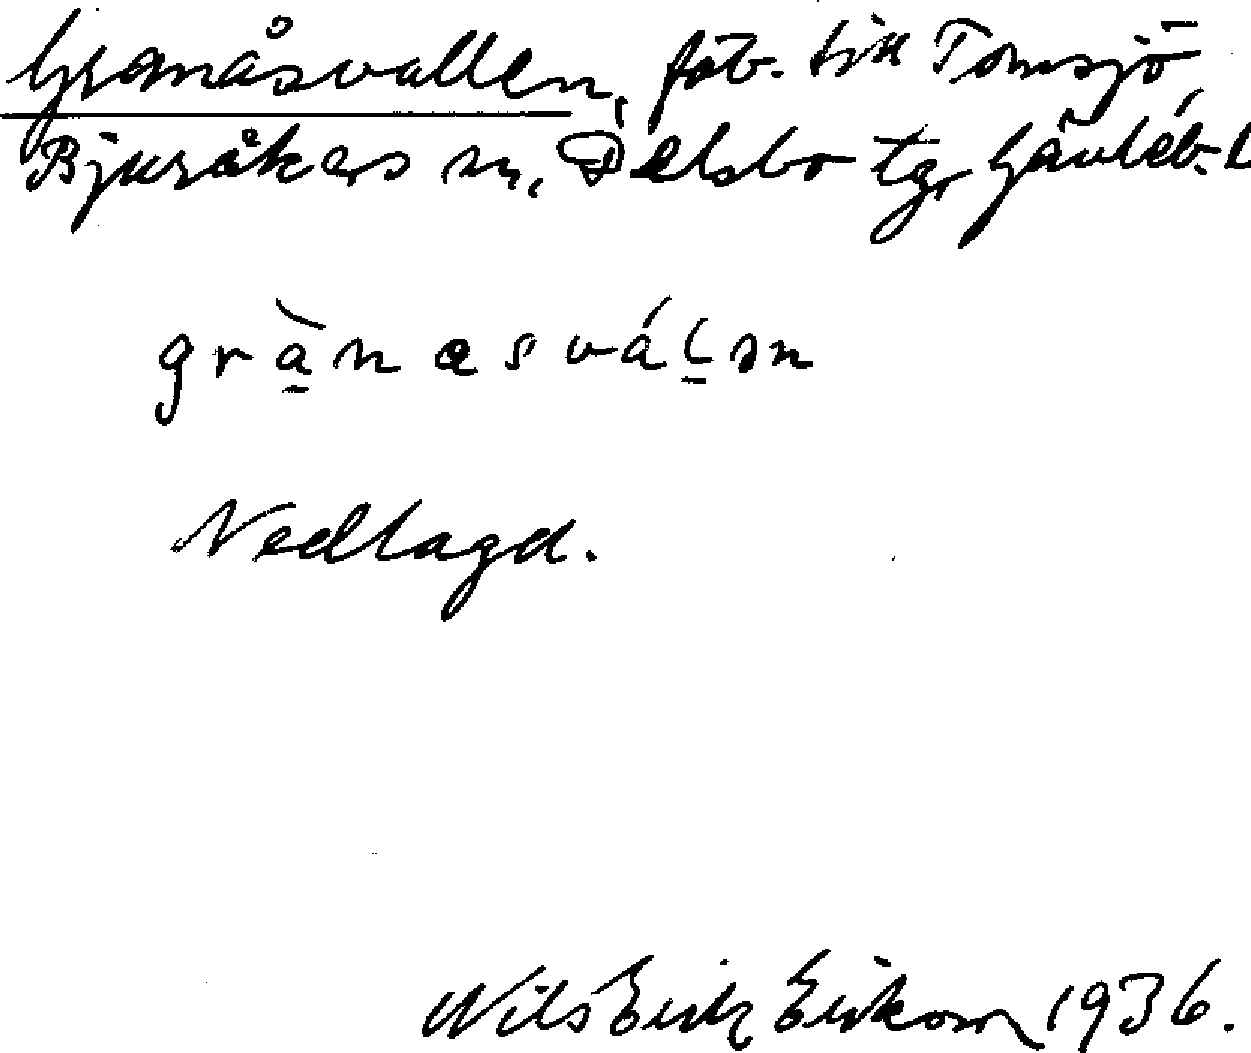 Granåsvallen, fäb. till Tomsjö
Bjuråkers sn, Delsbo tg, Gävleb. L
grànasválən
Nedlagd.
Nils Erik Eriksson 1936.